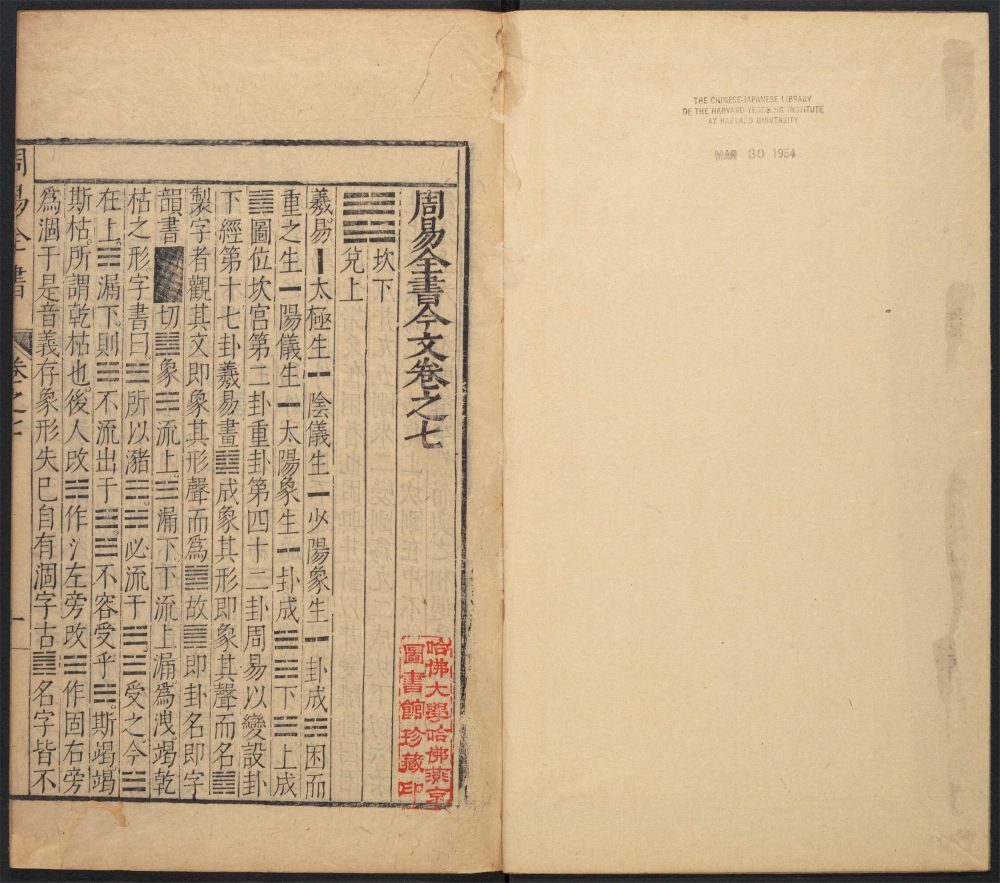 THE CHINESE-JAPANESE LIBRARY
OF THE HARVARD-YENCHING INSTITUTE
AT HARVARD UNIVERSITY
MAR 30 1954
周易全書今文卷之七
哈佛大學哈佛燕京
圖書館珍藏印
䷮坎下
兌上
羲易丨太極生丨陰儀生丨少陽象生丨卦成☵困而
重之生丨陽儀生丨太陽象生丨卦成☱☵下☱上成
䷮圖位坎宮第二卦重卦第四十二卦周易以變設卦
下經第十七卦羲易畫䷮成象其形即象其聲而名䷮
製字者觀其文即象其形聲而爲䷮故䷮即卦名即字
韻書 切䷮象☱流上☵漏下下流上漏爲洩竭乾
枯之形字書曰☱所以豬☵☵必流于☱☱受之今☱
在上☵漏下則☵不流出于☱☱不容受乎☵斯竭竭
斯枯所謂乾枯也後人改☵作氵左旁改☱作固右旁
爲涸于是音義存象形失已自有涸字古䷮名字皆不
周易全書
卷之七
一